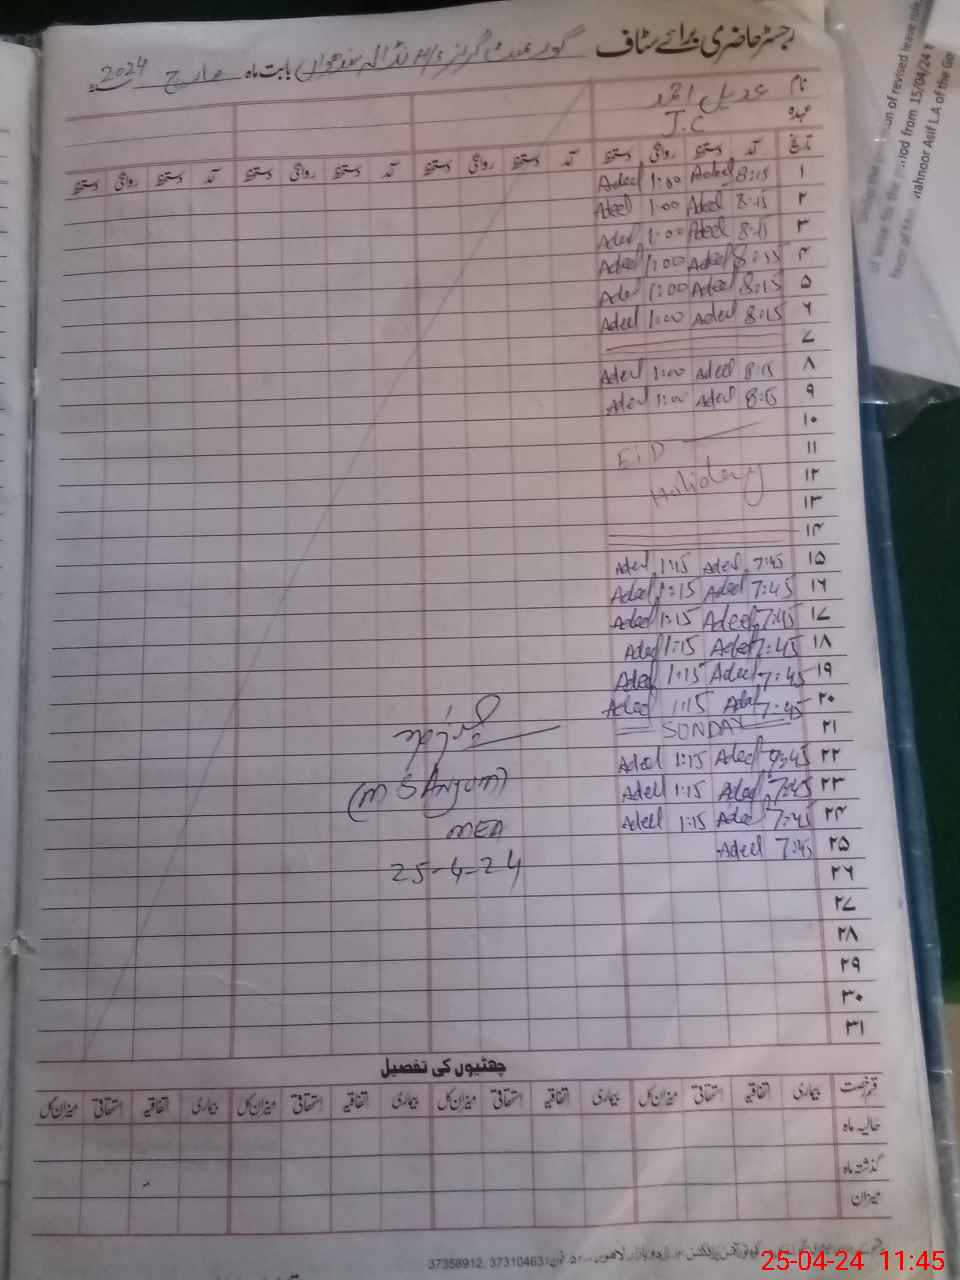 رجسٹر حاضری برائے سٹاف گورنمنٹ گرلز H/S نڈالہ سندھواں بابت ماہ مارچ 2024ء
نام عدیل احمد
عہدہ J.C
تاریخ آمد دستخط روانگی دستخط آمد دستخط روانگی دستخط آمد دستخط روانگی دستخط آمد دستخط روانگی دستخط
۱ 8:15 Adeel 1:00 Adeel
۲ 8:15 Adeel 1:00 Adeel
۳ 8:15 Adeel 1:00 Adeel
۴ 8:15 Adeel 1:00 Adeel
۵ 8:15 Adeel 1:00 Adeel
۶ 8:15 Adeel 1:00 Adeel
۷
۸ 8:15 Adeel 1:00 Adeel
۹ 8:15 Adeel 1:00 Adeel
۱۰
۱۱ EiD
۱۲ Holiday
۱۳
۱۴
۱۵ 7:45 Adeel 1:15 Adeel
۱۶ 7:45 Adeel 1:15 Adeel
۱۷ 7:45 Adeel 1:15 Adeel
۱۸ 7:45 Adeel 1:15 Adeel
۱۹ 7:45 Adeel 1:15 Adeel
۲۰ 7:45 Adeel 1:15 Adeel
۲۱ SUNDAY
۲۲ 7:45 Adeel 1:15 Adeel
۲۳ 7:45 Adeel 1:15 Adeel
۲۴ 7:45 Adeel 1:15 Adeel
۲۵ 7:45 Adeel
۲۶
۲۷
۲۸
۲۹
۳۰
۳۱
(M S Anjum)
MEA
25-4-24
چھٹیوں کی تفصیل
قسم رخصت بیماری اتفاقیہ استحقاقی میزان کل بیماری اتفاقیہ استحقاقی میزان کل بیماری اتفاقیہ استحقاقی میزان کل بیماری اتفاقیہ استحقاقی میزان کل
حالیہ ماہ
گذشتہ ماہ
میزان
اردو بازار لاہور فون: 37310463, 37358912
of revised leave rule
for the period from 15/04/24
favor of Mahnoor Asif L.A of the Go
25-04-24 11:45